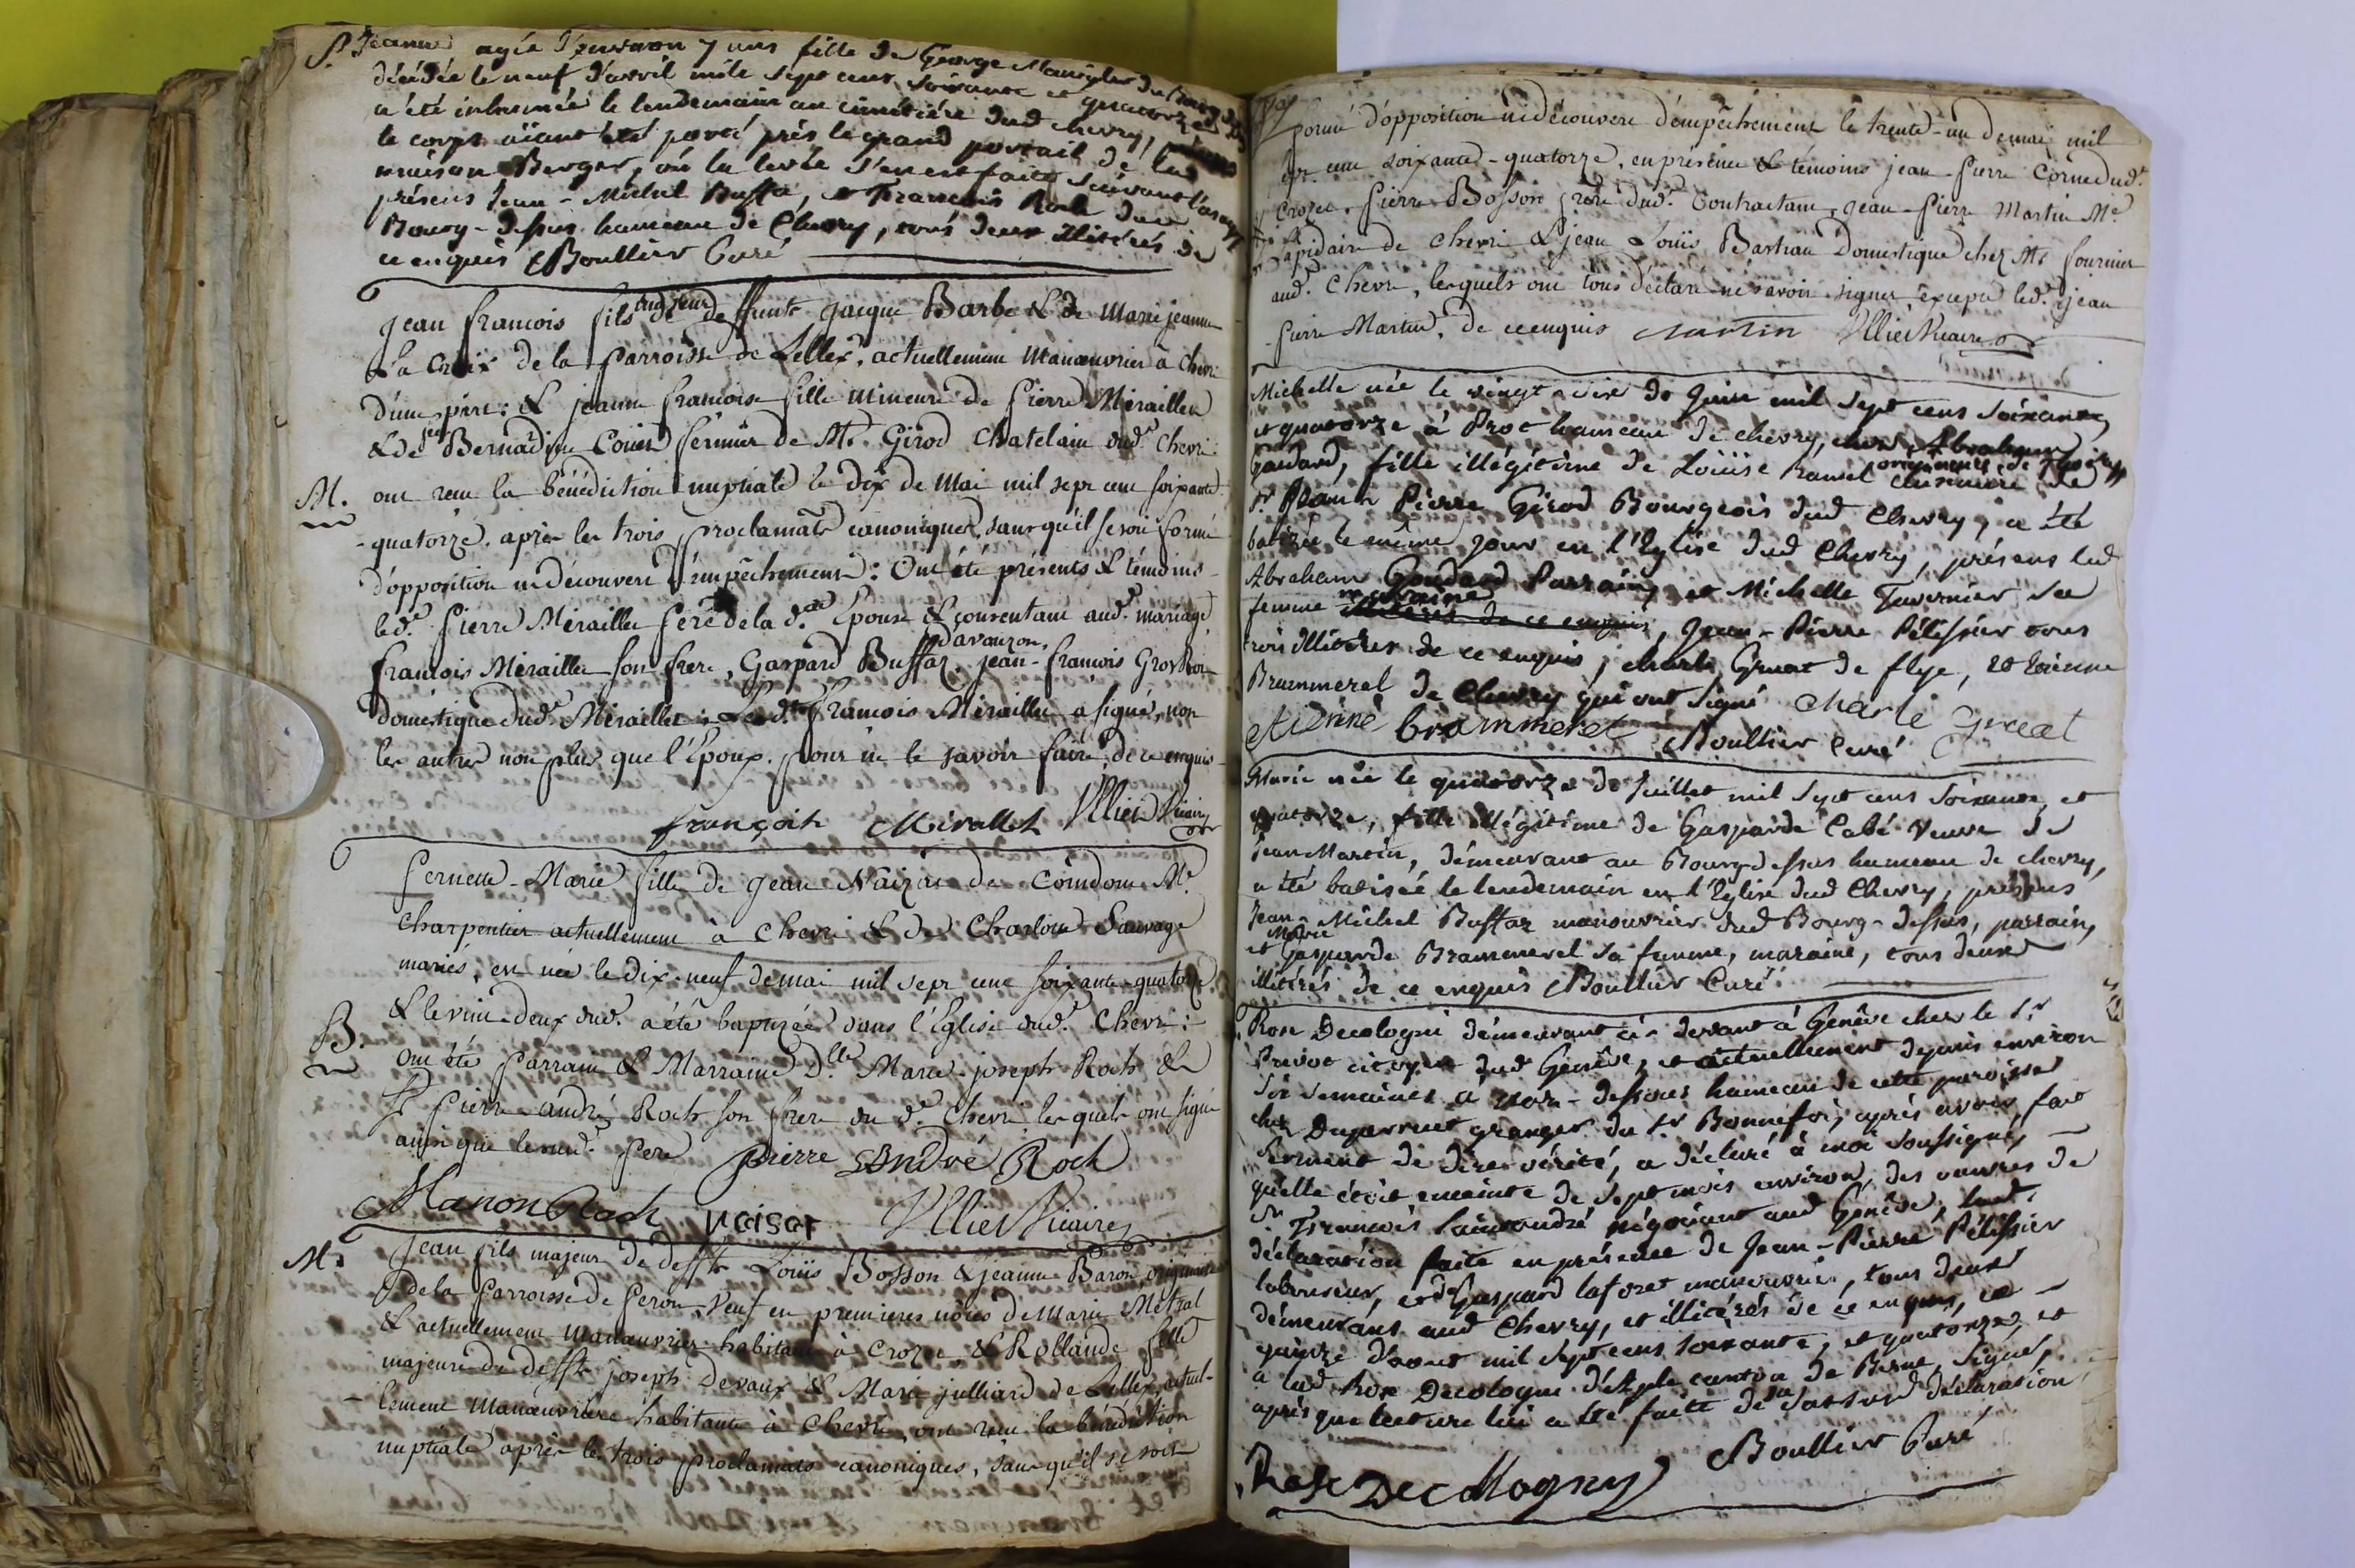 S. Jeanne agée d'environ 7 ans fille de George
décédée le neuf d'avril mile sept cens soixante et quatorze
a été inhumée le lendemain au cimétiére dud chevry,
le corps aïant été porté près le grand portail de lad
maison Berger, où la levée s'en est faite suivant l'usage
présens Jean-Michel Buffa, et François Roch du
Bourg-dessus hameau de Chevry, tous deux illitérés de
ce enquis Boullier Curé
Jean francois fils majeur de deffunts jacque Barbe & de Marie jeanne
La Croix de la parroisse de Lellex, actuellement manoeuvrier à chevri
d'une part: & jeanne francoise fille mineure de Pierre Miraillet
& de feue Bernardine fermier de Mr. Girod Chatelain dud. Chevri
M. ont recu la bénédiction nuptiale le dix de Mai mil sept cent soixante
-quatorze. après les trois proclamats canoniques, sans qu'il se soit formé
d'opposition ni découvert d'empêchement: Ont été présents & témoins
led. Pierre Miraillet Pere de la de. Epouse & consentant aud. mariage
francois Miraillet son frere, Gaspard Buffaz, davouzon, jean-francois
domestique dud. Miraillet: Led. francois Miraillet a signé, non
les autres non plus que l'Epoux, pour ne le savoir faire, de ce enquis
françois Mirallet Ulliet Vicaire
Pernette-Marie fille de jean Naizar de Me.
Charpentier actuellement à Chevri & de Charlotte Sauvage
mariés, est née le dix-neuf de mai mil sept cent soixante-quatorze
B. & le vint-deux dud. a été baptizée dans l'Eglise dud. Chevri:
ont été Parrain & Marraine Dlle Marie-joseph Roch &
Sr Pierre-andré Roch son frere du d. Chevri, lesquels ont signé
ainsi que le sud. Pere pierre andré Roch
Manon Roch naisar Ulliet Vicaire
M. Jean fils majeur de deffts Loüis Bosson & jeanne Baron originaire
de la Parroisse de Peron, Veuf en premieres nôces de Marie Métral
& actuellement manoeuvrier habitant à Crozet & Rollande fille
majeure de defft joseph Devaux & Marie julliard de Lellex, actuel-
lement Manoeuvriere habitante à Chevri, ont recu la bénédiction
nuptiale après les trois proclamats canoniques, sans qu'il se soit
formé d'opposition ni découvert d'empêchement le trente-un de mai mil
sept cent soixante-quatorze, en présence & témoins jean-Pierre Cornu dud.
Crozet, Pierre Bosson frere dud. Contractant, jean-Pierre Martin Me
lapidaire de chevri & jean Loüis Bastian Domestique chez Mr fournier
aud. Chevri, lesquels ont tous déclaré ne savoir signer excepté led. jean
-Pierre Martin, de ce enquis martin Ulliet Vicaire
Michelle née le vingt-six de juin mil sept cens soixante
et quatorze à Prot hameau de chevry, chez Abraham
Goudard, fille illégitime de Loüise hamel originaire de
Sr. Pierre Girod Bourgeois dud Chevry, a été
batizée le même jour en l'Eglise dud Chevry, présens led
Abraham Goudard Parrain, et Michelle Tavernier sa
femme maraine, Jean-Pierre Pélissier tous
trois illitérés de ce enquis, charle Gruat de flye, et Etienne
Brammerel de Chevry qui ont signé Charle Grueat
Etienne brammerel Boullier curé
Marie née le quatorze de juillet mil sept cens soixante et
quatorze, fille illégitime de Gasparde Cabé veuve de
Jean Martin, démeurant au Bourg-dessus hameau de chevry,
a été batisée le lendemain en l'Eglise dud Chevry, présens
Jean-Michel Buffaz manouvrier dud Bourg-dessus, parrain,
et Marie Gasparde Brammerel sa femme, maraine, tous deux
illitérés de ce enquis Boullier Curé
Rose Decologni démeurant ci-devant à Genêve chez le Sr
Prevot citoyen dud Genêve, et actuellement depuis environ
six semaines à -dessous hameau de cette paroisse
chez Duperrut granger du Sr Bonnefoi, après avoir fait
serment de dire vérité, a déclaré à moi soussigné,
qu'elle étoit enceinte de sept mois environ, des oeuvres de
Sr. François négociant aud Genêve, lad.
déclaration faite en présence de Jean-Pierre Pélissier
laboureur, et de Gaspard laforet manouvrié, tous deux
démeurans aud Chevry, et illitérés de ce enquis, ce
quinze d'aout mil sept cens soixante, et quatorze, et
a lad Rose Decologni d'Aple canton de Berne, signé,
après que lecture lui a été faite de sa susd déclaration
Boullier Curé
Rose Decollogny